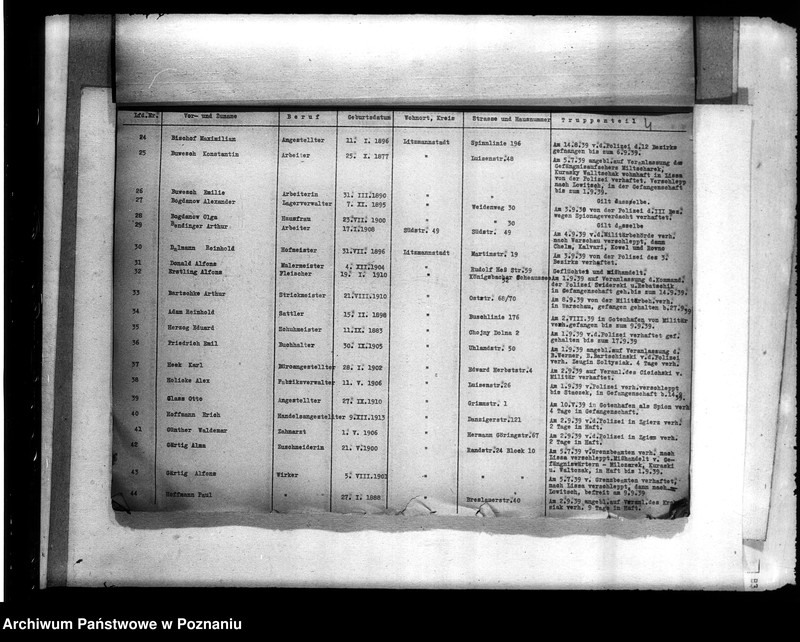 Lfd.Nr. Vor- und Zuname Beruf Geburtsdatum Wohnort, Kreis Strasse und Hausnummer Truppenteil
24 Bischof Maximilian Angestellter 11. I. 1896 Litzmannstadt Spinnlinie 196 Am 14.8.39 v.d.Polizei d.12 Bezirks
gefangen bis zum 6.9.39.
25 Buwesch Konstantin Arbeiter 25. I. 1877 " Luisenstr.48 Am 5.7.39 angebl.auf Veranlassung der
Gefängnisaufsehers Miltscharek,
Kuraszky Walltschak wohnhaft in Lissa
von der Polizei verhaftet. Verschlepp
nach Lowitsch, in der Gefangenschaft
bis zum 1.9.39.
26 Buwesch Emilie Arbeiterin 31. III.1890 " " Gilt dasselbe.
27 Bogdanow Alexander Lagerverwalter 7. XI. 1895 " Weidenweg 30 Am 3.9.39 von der Polizei d.III Bez.
wegen Spionageverdacht verhaftet.
28 Bogdanow Olga Hausfrau 25.VII. 1900 " " 30 Gilt dasselbe
29 Bendinger Arthur Arbeiter 17.I.1908 Südstr. 49 Südstr. 49 Am 4.9.39 v.d.Militärbehörde verh.
nach Warschau verschleppt, dann
Chelm, Kalvari, Kowel und Rowno
30 Reinhold Hofmeister 31.VII. 1896 Litzmannstadt Martinstr. 19 Am 3.9.39 von der Polizei des 3.
Bezirks verhaftet.
31 Donald Alfons Malermeister 4. XII.1904 " Rudolf Heß Str.59 Geflüchtet und mißhandelt.
32 Erstling Alfons Fleischer 19. I. 1910 " Königsbacher Chaussee Am 1.9.39 auf Veranlassung d.Kommand.
der Polizei Swiderski u.Rebatschik
in Gefangenschaft geh.bis zum 14.9.39
33 Bartschke Arthur Strickmeister 21.VIII.1910 " Oststr. 68/70 Am 8.9.39 von der Militärbeh.verh.
in Warschau, gefangen gehalten b.27.9.39
34 Adam Reinhold Sattler 15. II. 1898 " Buschlinie 176 Am 2.VIII.39 in Gotenhafen von Militär
verh.gefangen bis zum 9.9.39.
35 Herzog Eduard Schuhmacher 11.IX. 1883 " Chojny Dolna 2 Am 1.9.39 v.d.Polizei verhaftet gef.
gehalten bis zum 17.9.39
36 Friedrich Emil Buchhalter 30. IX.1905 " Uhlandstr. 50 Am 1.9.39 angebl.auf Veranlassung d.
B.Werner, R.Bartschinski v.d.Polizei
verh. Zeugin Soltysiak. 4 Tage verh.
37 Heek Karl Büroangestellter 28. I. 1902 " Edward Herbststr.4 Am 2.9.39 auf Veranl.des Cisichski v.
Militär verhaftet.
38 Holicke Alex Fabrikverwalter 11. V. 1906 " Luisenstr.26 Am 1.9.39 v.Polizei verh.verschleppt
bis Staszek, in Gefangenschaft b.14.9.39.
39 Glass Otto Angestellter 27. IX.1910 " Grimmstr. 1 Am 10.V.39 in Gotenhafen als Spion verh
4 Tage in Gefangenschaft.
40 Hoffmann Erich Handelsangestellter 9.XII.1913 " Danzigerstr.121 Am 2.9.39 v.d.Polizei in Zgierz verh.
2 Tage in Haft.
41 Günther Waldemar Zahnarzt 1. V. 1906 " Hermann Göringstr.67 Am 2.9.39 v.d.Polizei in Zgierz verh.
2 Tage in Haft.
42 Gürtig Alma Zuschneiderin 21. V.1900 " Ramdstr.24 Block 10 Am 5.7.39 v.Grenzbeamten verh. nach
Lissa verschleppt.Mißhandelt v. Ge-
fängniswärtern - Milczarek, Kuraski
u. Waltczak, in Haft bis 1.9.39.
43 Gürtig Alfons Wirker 5. VIII.1902 " " " Am 5.7.39 v. Grenzbeamten verhaftet,
nach Lissa verschleppt, dann nach
Lowitsch, befreit am 9.9.39
44 Hoffmann Paul " 27. I. 1888 " Breslauerstr.60 Am 2.9.39 angebl.auf Veranl.des
siak verh. 9 Tage in Haft.
Archiwum Państwowe w Poznaniu